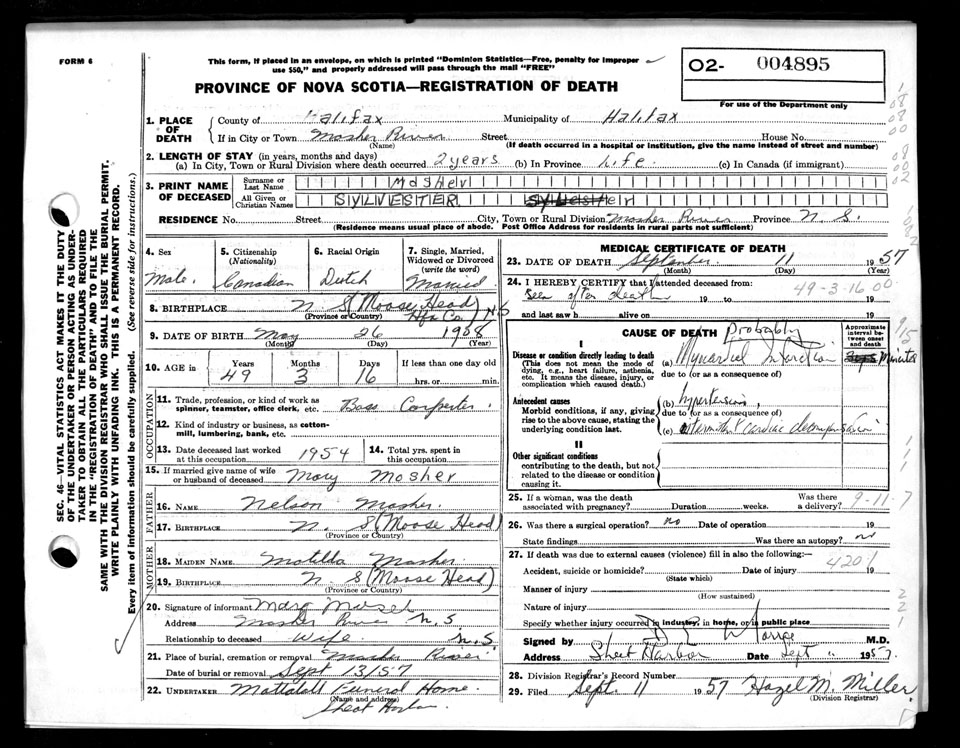 FORM 6
This form, if placed in an envelope, on which is printed "Dominion Statistics—Free, penalty for improper
use $50," and properly addressed will pass through the mail "FREE"
O2- 004895
For use of the Department only
PROVINCE OF NOVA SCOTIA—REGISTRATION OF DEATH
1. PLACE OF DEATH { County of Halifax Municipality of Halifax
If in City or Town Mosher River Street House No.
(Name) (If death occurred in a hospital or institution, give the name instead of street and number)
2. LENGTH OF STAY (in years, months and days)
(a) In City, Town or Rural Division where death occurred 2 years (b) In Province Life (c) In Canada (if immigrant)
3. PRINT NAME OF DECEASED { Surname or Last Name Mosher
All Given or Christian Names SYLVESTER
RESIDENCE No. Street City, Town or Rural Division Mosher River Province N. S.
(Residence means usual place of abode. Post Office Address for residents in rural parts not sufficient)
4. Sex Male
5. Citizenship (Nationality) Canadian
6. Racial Origin Dutch
7. Single, Married, Widowed or Divorced (write the word) Married
8. BIRTHPLACE N. S (Moose Head) Hfx Co. NS
(Province or Country)
9. DATE OF BIRTH May 26 1908
(Month) (Day) (Year)
10. AGE in { Years 49 Months 3 Days 16 If less than one day old
hrs. or min.
OCCUPATION
11. Trade, profession, or kind of work as spinner, teamster, office clerk, etc. Boss Carpenter
12. Kind of industry or business, as cotton-mill, lumbering, bank, etc.
13. Date deceased last worked at this occupation 1954
14. Total yrs. spent in this occupation
15. If married give name of wife or husband of deceased Mary Mosher
FATHER
16. NAME Nelson Mosher
17. BIRTHPLACE N. S (Moose Head)
(Province or Country)
MOTHER
18. MAIDEN NAME Matilda Mosher
19. BIRTHPLACE N. S (Moose Head)
(Province or Country)
20. Signature of informant Mary Mosher
Address Mosher River N. S
Relationship to deceased Wife N. S
21. Place of burial, cremation or removal Mosher River
Date of burial or removal Sept 13/57
22. UNDERTAKER Mattatall Funeral Home
(Name and address)
Sheet Harbor
MEDICAL CERTIFICATE OF DEATH
23. DATE OF DEATH September 11 1957
(Month) (Day) (Year)
24. I HEREBY CERTIFY that I attended deceased from:
Seen after death 19 to 19
49-3-16 00
and last saw h alive on 19
CAUSE OF DEATH Probably
Approximate interval between onset and death
I
Disease or condition directly leading to death
(This does not mean the mode of dying, e.g., heart failure, asthenia, etc. It means the disease, injury, or complication which caused death.)
(a) Myocardial Infarction Minutes
due to (or as a consequence of)
Antecedent causes
Morbid conditions, if any, giving rise to the above cause, stating the underlying condition last.
(b) hypertension,
due to (or as a consequence of)
(c) intermittent cardiac decompensation
II
Other significant conditions
contributing to the death, but not related to the disease or condition causing it.
25. If a woman, was the death associated with pregnancy? Duration weeks. Was there a delivery?
9-11-7
26. Was there a surgical operation? no Date of operation 19
State findings Was there an autopsy? no
27. If death was due to external causes (violence) fill in also the following:—
Accident, suicide or homicide? Date of injury 19
420.1
(State which)
Manner of injury
(How sustained)
Nature of injury
Specify whether injury occurred in industry, in home, or in public place
Signed by M.D.
Address Sheet Harbor Date Sept 1957.
28. Division Registrar's Record Number
29. Filed Sept. 11 1957 Hazel M. Miller
(Division Registrar)
SEC. 46—VITAL STATISTICS ACT MAKES IT THE DUTY
OF THE UNDERTAKER OR PERSON ACTING AS UNDER-
TAKER TO OBTAIN ALL THE PARTICULARS REQUIRED
IN THE "REGISTRATION OF DEATH" AND TO FILE THE
SAME WITH THE DIVISION REGISTRAR WHO SHALL ISSUE THE BURIAL PERMIT.
WRITE PLAINLY WITH UNFADING INK. THIS IS A PERMANENT RECORD.
Every item of information should be carefully supplied. (See reverse side for instructions.)